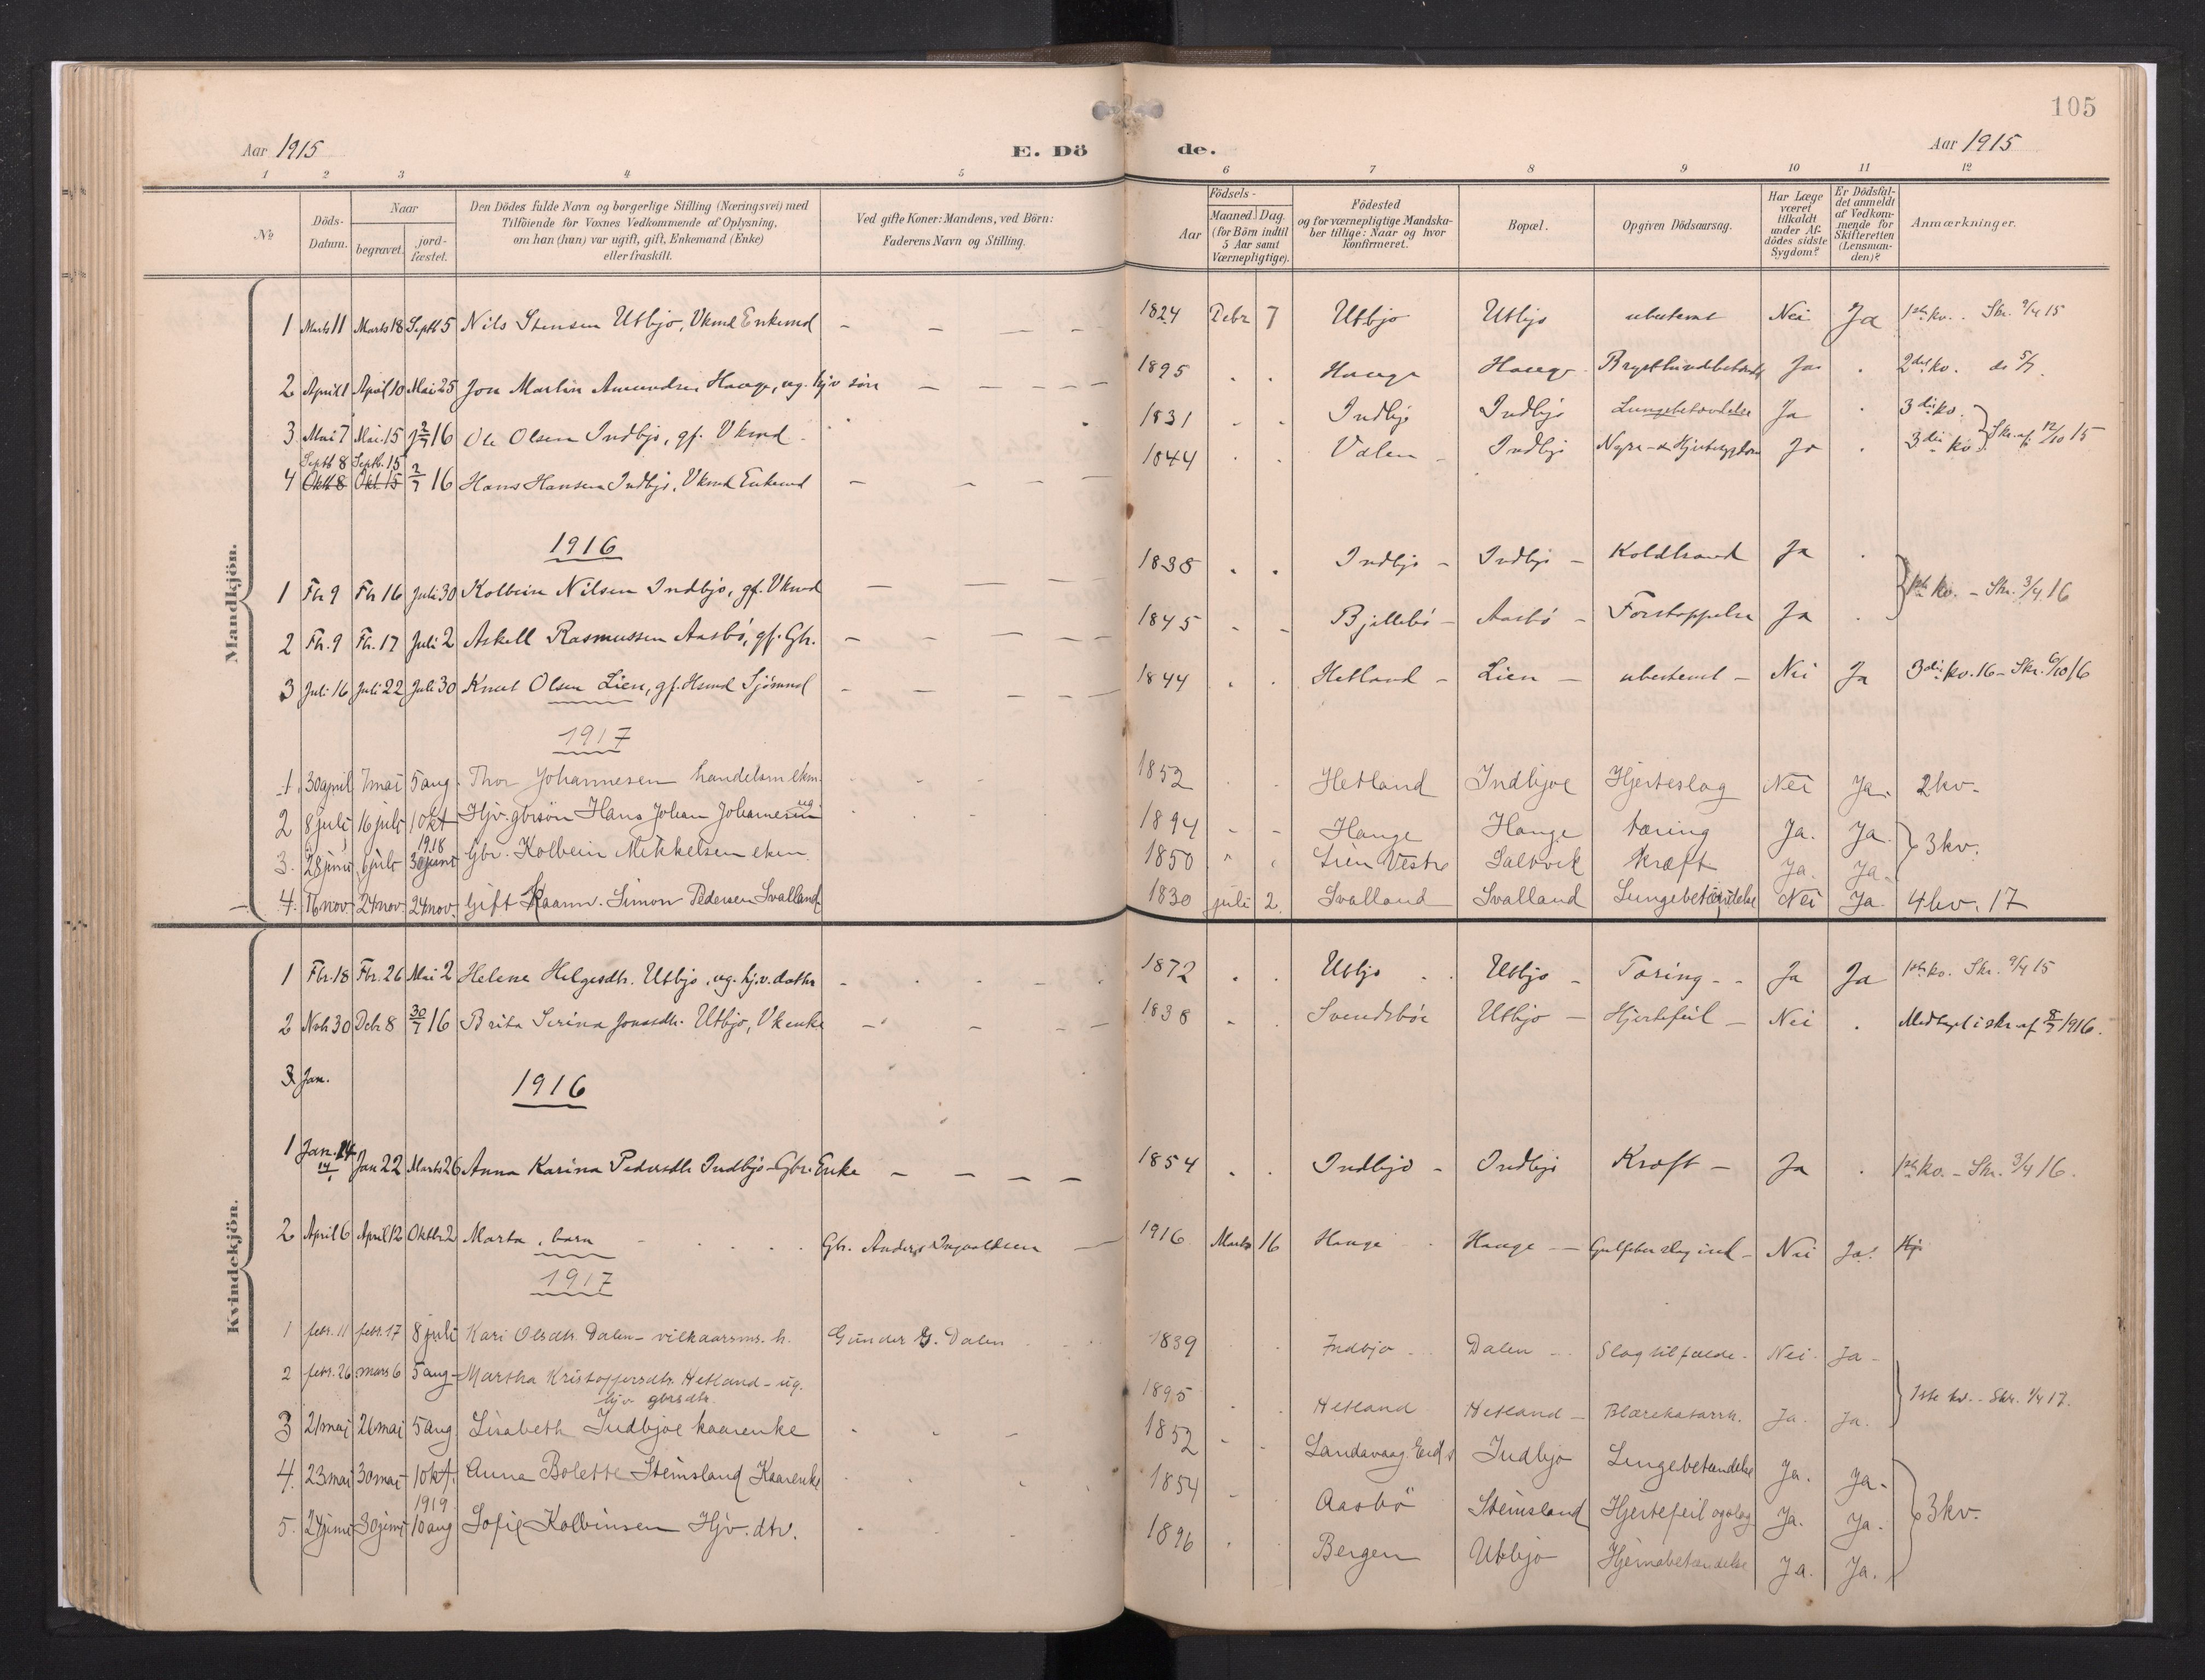 105
Aar 1915 E. Dö de. Aar 1915
1 2 3 4 5 6 7 8 9 10 11 12
No
Döds-
Datum.
Naar
begravet.
jord-
fæstet.
Den Dödes fulde Navn og borgerlige Stilling (Næringsvei) med
Tilföiende for Voxnes Vedkommende af Oplysning,
om han (hun) var ugift, gift, Enkemand (Enke)
eller fraskilt.
Ved gifte Koner: Mandens, ved Börn:
Faderens Navn og Stilling.
Födsels-
Aar
Maaned Dag.
(for Börn indtil
5 Aar samt
Værnepligtige).
Födested
og for værnepligtige Mandska-
ber tillige: Naar og hvor
konfirmeret.
Bopæl.
Opgiven Dödsaarsag.
Har Læge
været
tilkaldt
under Af-
dödes sidste
Sygdom?
Er Dödsfal-
det anmeldt
af Vedkom-
mende for
Skifteretten
(Lensman-
den)?
Anmærkninger.
Mandkjön.
1 Marts 11 Marts 18 Septb 5 Nils Stensen Utbjo, Vkmd Enkemd - - - - 1824 Febr 7 Utbjo Utbjo ubestemt Nei Ja 1ste kv. Skr. 9/4 15
2 April 1 April 10 Mai 25 Jon Martin Amundsen Hauge, ug. hjv søn - - - - 1895 . . Hauge Hauge Ja . 2det kv. do 5/7.
3 Mai 7 Mai 15 2/7 16 Ole Olsen Indbjo, gf. Vkmd - 1831 . . Indbjo Indbjo Lungebetændelse Ja . 3die kv.
Septb 8 Septb. 15
4 Oktb 8 Okt 15 2/7 16 Hans Hansen Indbjo, Vkmd Enkemd - - - - 1844 . . Valen - Indbjo Nyre- & Hjertesygdom Ja . 3die kv. } Skr. af 12/10 15
1916
1 Fbr 9 Fbr 16 Juli 30 Kolbein Nilsen Indbjo, gf. Vkmd - - - - 1838 . . Indbjo - Indbjo - Koldbrand Ja .
2 Fbr. 9 Fbr. 17 Juli 2 Askell Rasmussen Aasbö, gf. Gbr. - - - - 1845 - - Bjellebö - Aasbö - Forstoppelse Ja . } 1ste kv. - Skr. 3/4 16
3 Juli 16 Juli 22 Juli 30 Knut Olsen Lien, gf. Hsmd Sjömnd - - - - 1844 . . Hetland - Lien - ubestemt - Nei Ja 3die kv. 16 - Skr. 6/10 16
1917
1. 30 april 7 mai 5 aug. Thor Johannesen handelsm ekm. . - - 1852 . . Hetland Indbjoe Hjerteslag Nei Ja. 2 kv.
2 8 juli 16 juli 1 okt Hjv. gbrsön Hans Johan Johannesen ug . - - 1894 - - Hauge Hauge tæring Ja. Ja.
1918
3. 28 juni 6 juli 30 juni Gbr. Kolbein Mikkelsen ekm. 1850 " . Lien Vestre Saltvik kræft Ja. Ja. } 3 kv.
4. 16 nov. 24 nov. 24 nov. Gift Kaarm. Simon Pedersen Svalland 1830 juli 2. Svalland Svalland Lungebetændelse Nei Ja. 4 kv. 17
Kvindekjön.
1 Fbr. 18 Fbr. 26 Mai 2 Helene Helgesdtr. Utbjo, ug. hj.v. datter - . . - . 1872 . . Utbjo . . Utbjo - Tæring - - Ja Ja 1ste kv. Skr. 9/4 15
2 Nvb 30 Dcb 8 30/7 16 Brita Serina Jonasdtr. Utbjo, Vkenke - - - - 1838 - . Svendsböe Utbjo - Hjertefeil - Nei . Medtaget i skr. af 8/7 1916.
3 Jan.
1916
1 Jan. 14 14/1 Jan 22 Marts 26 Anna Karina Pedersdtr Indbjo - Gbr. Enke - - - - 1854 . . Indbjo - Indbjo Kræft - Ja . 1ste kv. - Skr. 3/4 16.
2 April 6 April 12 Oktbr 2 Marta, barn - . . . Gbr. Anders Ingvaldsen - 1916 Marts 16 Hauge . Hauge - - Nei Ja. Hjv
1917
1 febr. 11 febr. 17 8 juli Kari Olsdtr. Dalen - vilkaarsms. h. Gunder G. Dalen 1839 . . Indbjo . . Dalen - . Slagtilfælde - Nei. Ja -
2 febr. 26 mars 6 5 aug - Martha Kristoffersdtr. Hetland - ug.
hjv. gbrsdtr. 1895 . . Hetland Hetland - Blærekatarrh. Ja. Ja. } 1ste kv. - Skr. 1/4 17.
3 21 mai 26 mai 5 aug Lisabeth Indbjoe kaarenke . - - 1852 - - Landavaag. Indbjo Lungebetændelse Ja. Ja.
4. 23 mai 30 mai 1 okt. Anna Bolette Steinsland Kaarenke . . . 1854 - . Aasbö Steinsland Hjertefeil Ja. Ja.
1919
5. 24 juni 30 juni 10 aug Sofie Kolbeinsen Hjv. dtr. . . - 1896 . . Bergen Utbjo Hjernebetændelse Ja. Ja. } 3 kv.